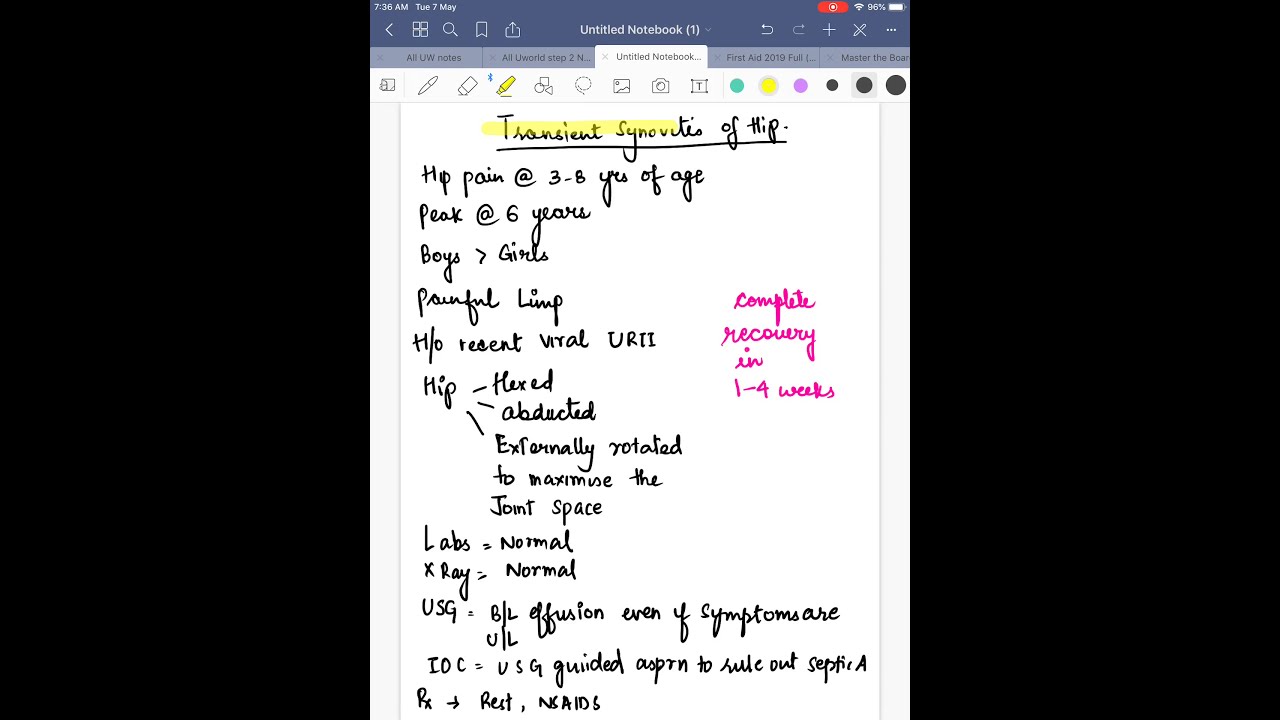 7:36 AM Tue 7 May
96%
Untitled Notebook (1)
All UW notes
All Uworld step 2 N...
Untitled Notebook...
First Aid 2019 Full (...
Master the Boar
T
Transient Synovitis of Hip.
Hip pain @ 3-8 yrs of age
Peak @ 6 years
Boys > Girls
Painful Limp
H/o recent viral URTI
Hip - flexed
abducted
Externally rotated
to maximise the
Joint Space
complete
recovery
in
1-4 weeks
Labs = Normal
X Ray = Normal
USG = B/L effusion even if symptoms are
U/L
IOC = USG guiided asprn to rule out septic A
Rx → Rest, NSAIDS